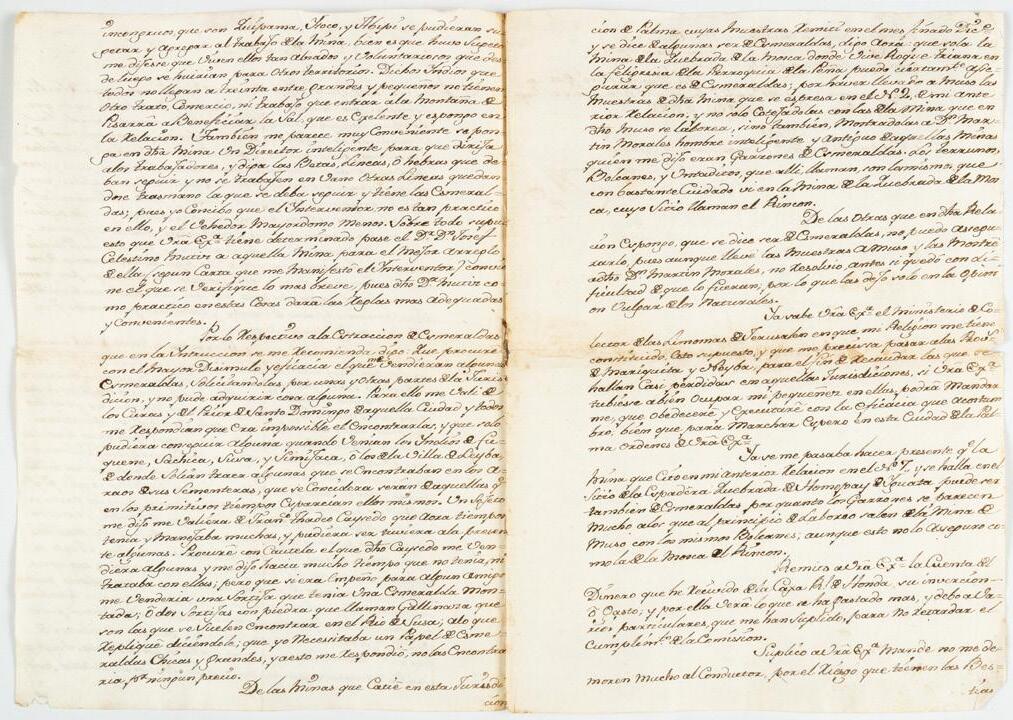 incongruos que son Quipama, Ytoco, y Abipí se pudieran su
petar y agregar al trabajo de la Mina, bien es que hubo Sugeto
me dijesse que viven ellos tan Alzados y Voluntariosos que des
de luego se huirian para Otros territorios. Dichos Indios que
todos no llegan à treinta entre grandes y pequeños no tienen
Otro trato, Comercio, ni trabajo que entrar ala Montaña de
Pisarrá a Beneficiar la Sal, que es Excelente y espongo en
la Relacion. Tambien me parece muy Conveniente se pon
ga en dha Mina Un Director inteligente para que dirija
alos trabajadores, y diga las Betas, Lineas, ò hebras que de
ban seguir y no se trabajen en Vano Otras Lineas quedan
dose trasmano la que se deba seguir y tiene las Esmeral
das; pues yo Concibo que el Interventor no es tan practico
en ello, y el Vehedor Mayordomo Menos. Sobre todo supu
esto que Vrâ Exª tiene determinado pase el Dr Dn Josef
Celestino Mutis a aquella Mina para el Mejor Arreglo
de ella (segun Carta que me Manifestó el Interventor) convie
ne el que se Verifique lo mas breve, pues dho Dr Mutis co
mo practico en estas Cosas dará las Reglas mas Adequadas
y Convenientes.
Por lo Respectivo ala Extracion de Esmeraldas
que en la Intruccion se me Recomienda, digo: Que procuré
con el Mayor Disimulo, y eficacia el que me Vendieran algunas
Esmeraldas, Solicitandolas por unas y Otras partes de la Juris
dicion, y no pude adquirir cosa alguna. Para ello me Valí de
los Curas, y el Prior de Santo Domingo de aquella Ciudad y todos
me Respondian que Era impossible el Encontrarlas; y que solo
pudiera conseguir Alguna quando Venian los Indios de Fu
quene, Sachica, Susa, y Simijaca, ò los de la Villa de Leyba,
de donde Solian traer algunas que se Encontraban en los A
raos de sus Sementeras, que se Concibia serán de aquellas q
en los primitivos tiempos Esparcieran ellos mismos. Un Sugeto
me dijo me Valiera de Franco Thadeo Caycedo que Aora tiempos
tenia y Manejaba muchas, y pudiera ser tuviera ala presen
te algunas. Procuré con Cautela el que dho Caycedo me Ven
diera algunas y me dijo hacia mucho tiempo que no tenia, ni
trataba con ellas; pero que si era Empeño para Algun Amigo
me Venderia una Sortija que tenia Una Esmeralda Mon
tada; ò dos Sortijas con piedra que llaman Gallinaza que
son las que se Suelen Encontrar en el Rio de Susa; alo que
Repliqué diciendole; que yo Necesitaba un Papel de Esme
raldas Chicas, y Grandes, y aesto me Respondió, no las Encontra
ria pr ningun precio.
De las Minas que Catié en esta Jurisdi
cion
cion de Palma cuyas Muestras Remití en el mes finado Dice
y se dice de algunas ser de Esmeraldas, digo Aora: que sola la
Mina de la Quebrada de la Mosca donde Vive Rogue triana en
la feligresia de la Parroquia de la Peña, puedo ciertamte Ase
gurar que es de Esmeraldas; por haver llevado a Muso las
Muestras de dha Mina que se espresa en el Nº 2, de mi Ante
rior Relacion, y no solo Cotejadolas con las de la Mina que en
dho Muso se laborea, sino tambien, Mostradolas a Dn Mar
tin Morales hombre inteligente y Antiguo de aquellas Minas
quien me dijo eran Garrones de Esmeraldas. Los terrunos,
Bolcanes, y Untaditos, que allí, llaman, son lo mismo, que
con bastante Cuidado vi en la Mina de la Quebrada de la Mos
ca, cuyo Sitio llaman el Rincon.
De las Otras que en dha Rela
cion Espongo, que se dice ser de Esmeraldas, no puedo Asegu
rarlo, pues aunque llevé las Muestras a Muso y las Montré
adho Dn Martin Morales, no Resolvió, antes si quedó con di
ficultad de que lo fueran; por lo que las dejo solo en la Opini
on Vulgar de los Naturales.
Ya sabe Vrâ Exª el Ministerio de Co
lector de las Limosnas de Jerusalen en que mi Religion me tiene
constituido. Esto supuesto, y que me precissa pasar alas Provs
de Mariquita y Neyba, para el fin de Recaudar las que se
hallan Casi perdidas en aquellas Jurisdiciones, si Vrâ Exª
tubiese abien Ocupar mi pequeñez en ellas, podrá Mandar
me, que Obedeceré y Executaré con la Eficacia que Acostum
bro, bien que para Marchar Espero en esta Ciudad de la Pal
ma Ordenes de Vrâ Exª
Ya se me pasaba hacer presente q la
Mina que Cito en mi Anterior Relacion en el Nº 7, y se halla en el
Sitio de la Espadera Quebrada de Homepay de Yguata, puede ser
tambien de Esmeraldas por quanto los Garrones se Parecen
Mucho alos que al principio de Laboreo salen de la Mina de
Muso con los mismos Bolcanes; aunque esto no lo Aseguro co
mo la de la Mosca del Rincon.
Remito a Vrâ Exª la Cuenta del
Dinero que he Recivido de la Caxa Rl de Honda, su inversion
ò Gasto; y por ella Verá lo que se ha Gastado mas, y debo a Va
rios particulares, que me han Suplido, para no Retardar el
Cumplimto de la Comision.
Suplico a Vrâ Exª Mande no me de
moren Mucho al Conductor, por el Riesgo que tienen las Bes
tias